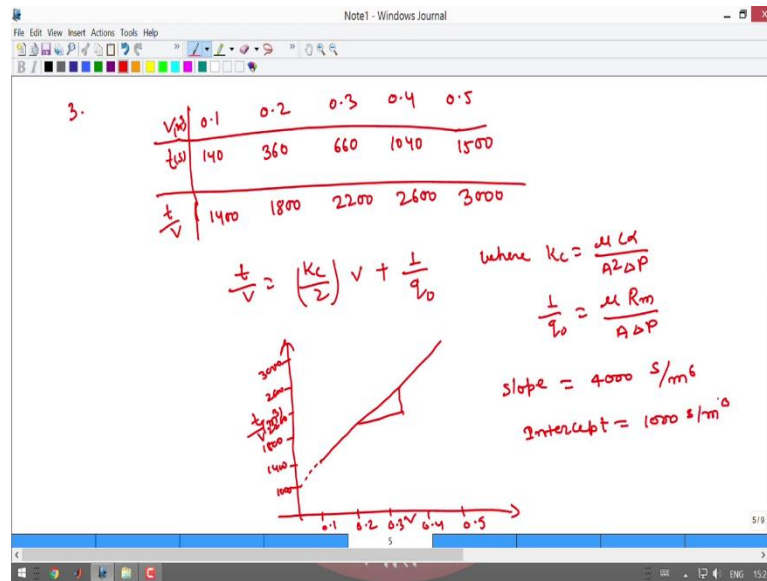 Note1 - Windows Journal
File Edit View Insert Actions Tools Help
B I
3.
V(m³) 0.1 0.2 0.3 0.4 0.5
t(s) 140 360 660 1040 1500
t/V 1400 1800 2200 2600 3000
t/V = (Kc/2) V + 1/q₀
where Kc = μCα/A²ΔP
1/q₀ = μRm/AΔP
slope = 4000 s/m⁶
Intercept = 1000 s/m
3000
2600
1800
1400
1000
0.1 0.2 0.3 V 0.4 0.5
5/9
5
ENG